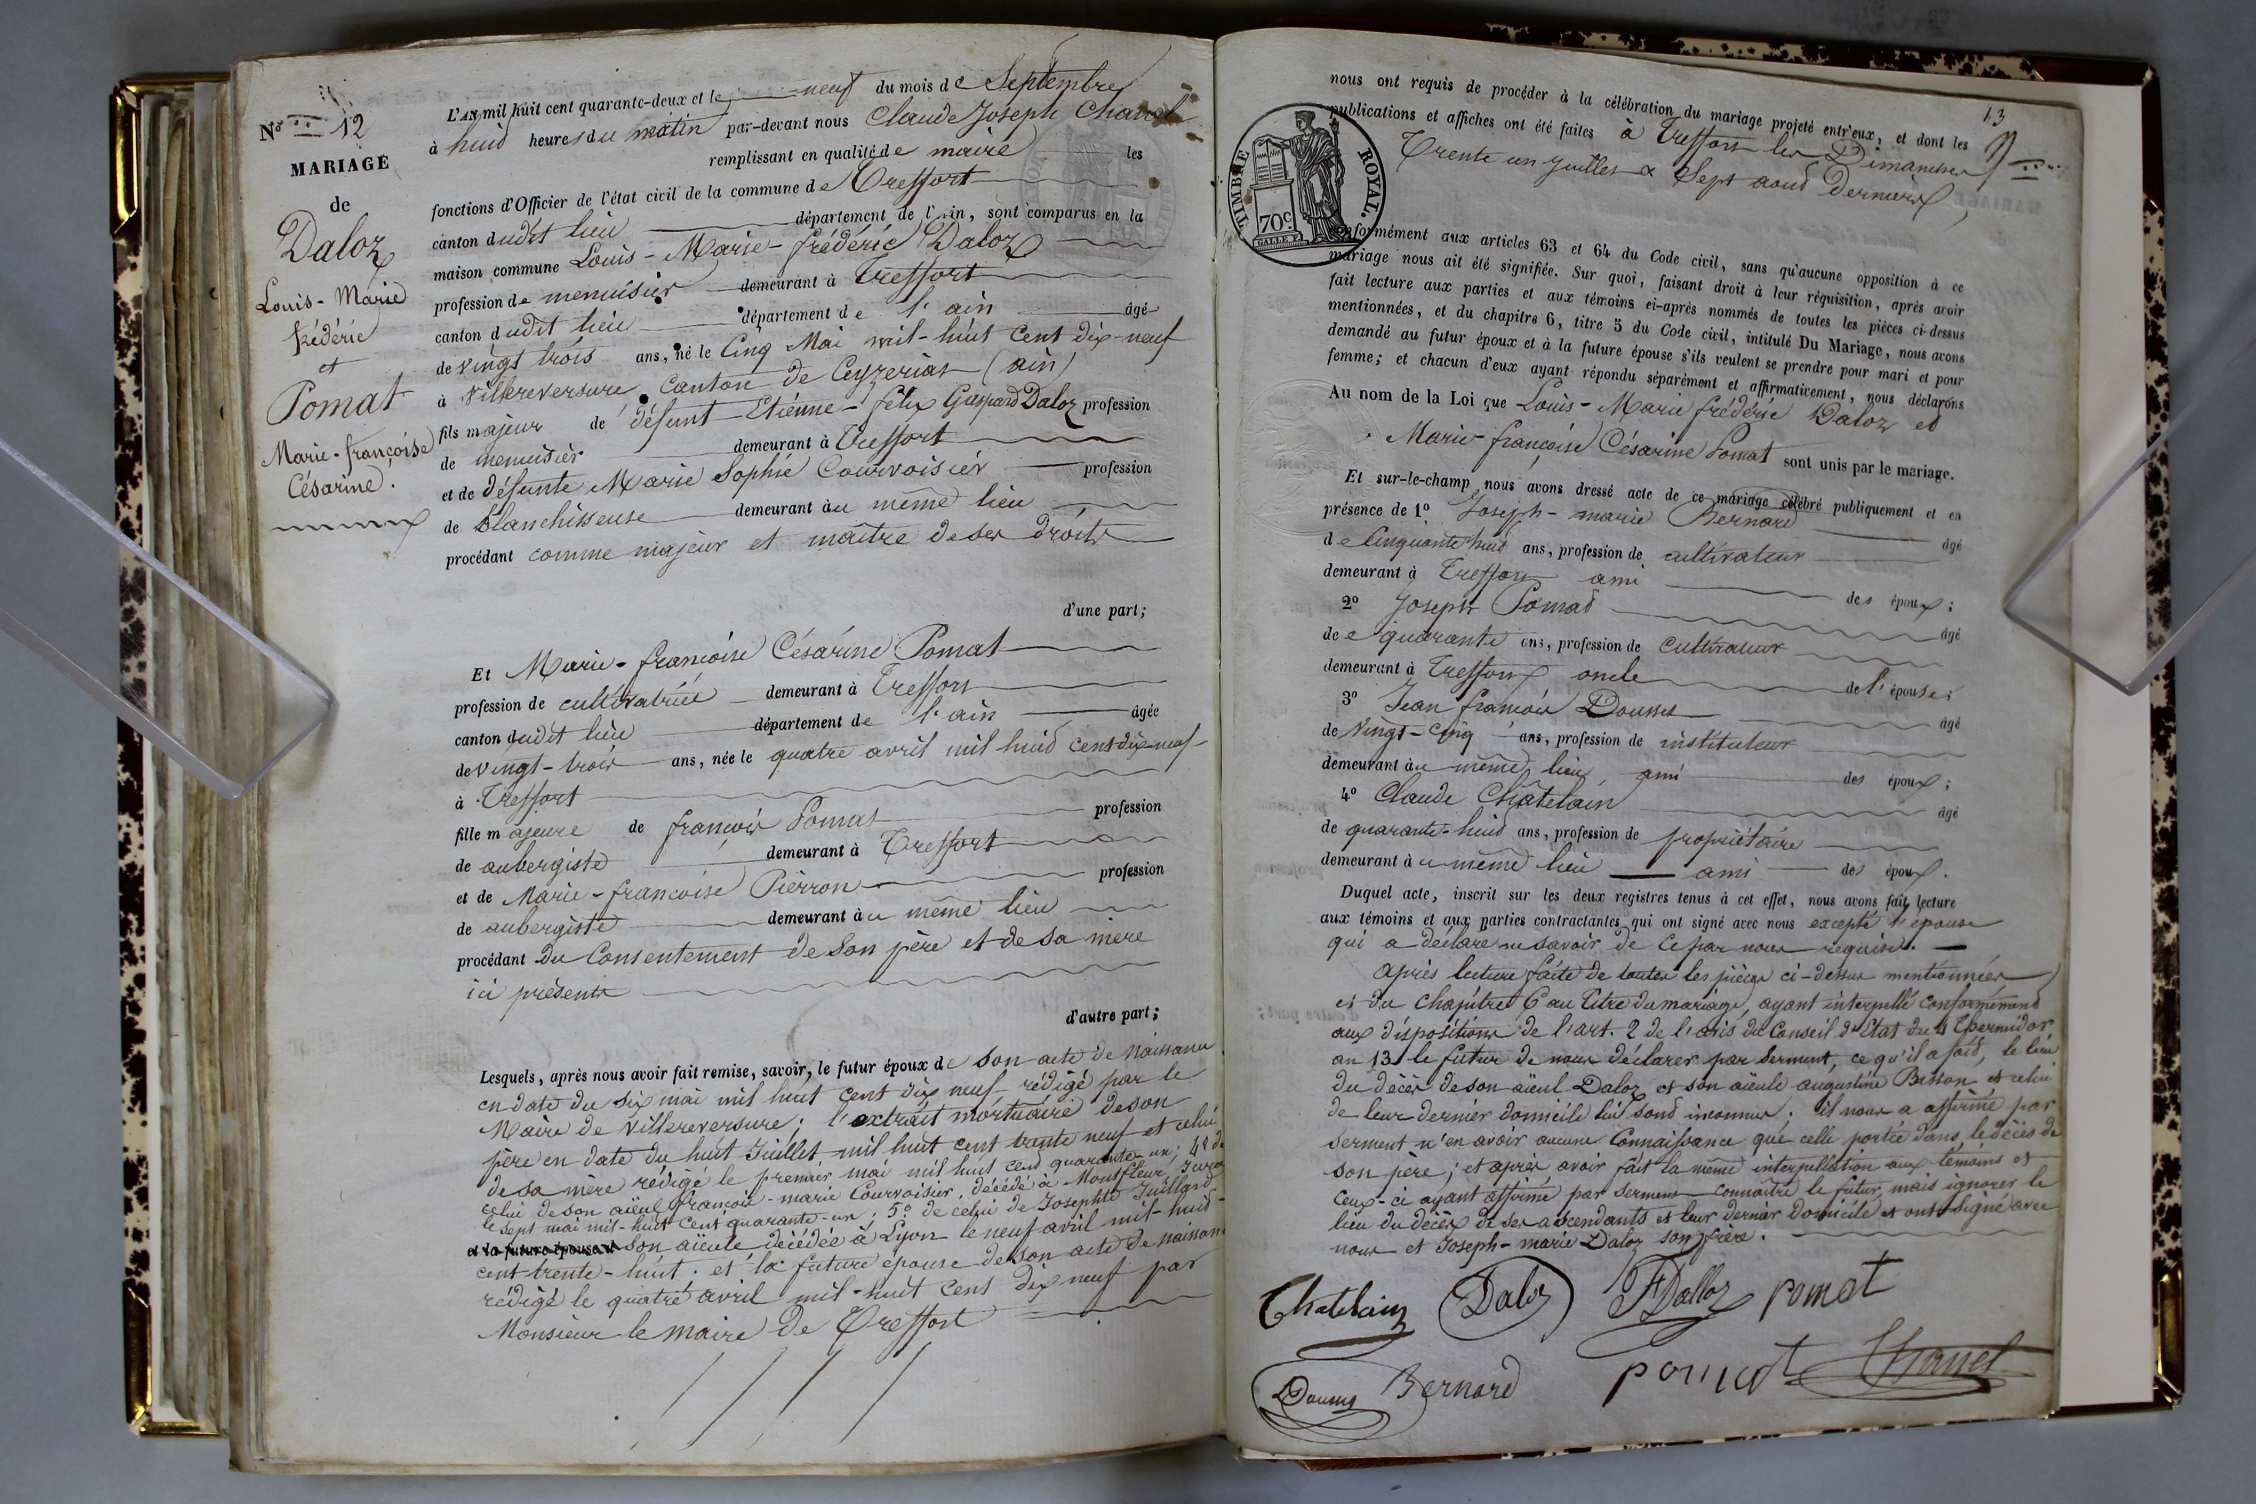 N° 12
MARIAGE
de
Daloz
Louis-Marie
frédéric
et
Pomat
Marie-françoise
Césarine.
L'AN mil huit cent quarante-deux et le neuf du mois de Septembre
à huid heures du matin par-devant nous Claude Joseph Chanel
remplissant en qualité de maire les
fonctions d'Officier de l'état civil de la commune de Treffort
canton dudit lieu département de l'Ain, sont comparus en la
maison commune Louis-Marie-frédéric Daloz
profession de menuisier demeurant à Treffort
canton dudit lieu département de l'ain âgé
de vingt trois ans, né le Cinq Mai mil-huit cent dix-neuf
à Villereversure, canton de Ceyzeriat (ain)
fils majeur de défunt Etiénne-félix Gaspard Daloz profession
de menuisier demeurant à Treffort
et de défunte Marie Sophie Courvoisier profession
de Blanchisseuse demeurant au même lieu
procédant comme majeur et maître de ses droits
d'une part;
Et Marie-françoise Césarine Pomat
profession de cultivatrice demeurant à Treffort
canton dudit lieu département de l'ain âgée
de vingt-trois ans, née le quatre avril mil huid cent dix-neuf
à Treffort
fille majeure de françois Pomat profession
de aubergiste demeurant à Treffort
et de Marie-françoise Piérron profession
de aubergiste demeurant au même lieu
procédant du Consentement de son père et de sa mère
ici présents
d'autre part;
Lesquels, après nous avoir fait remise, savoir, le futur époux de son acte de naissance
en date du six mai mil huit cent dix neuf rédigé par le
Maire de Villereversure; l'extrait mortuaire de son
père en date du huit Juillet mil huit cent trente neuf et celui
de sa mère rédigé le premier mai mil huit cent quarante-un; 4° de
celui de son aïeul françois-marie Courvoisier, décédé à Montfleur, Jura
le sept mai mil-huit cent quarante-un; 5° de celui de Josephte Juillard
et la future épouse son aïeule décédée à Lyon le neuf avril mil-huid-
cent trente-huit. et la future épouse de son acte de naissance
rédigé le quatre avril mil-huit cent dix neuf par
Monsieur le maire de Treffort
13
nous ont requis de procéder à la célébration du mariage projeté entr'eux, et dont les
publications et affiches ont été faites à Treffort les Dimanches
Trente un Juillet & Sept aoud Derniers,
TIMBRE ROYAL.
70c.
conformément aux articles 63 et 64 du Code civil, sans qu'aucune opposition à ce
mariage nous ait été signifiée. Sur quoi, faisant droit à leur réquisition, après avoir
fait lecture aux parties et aux témoins ci-après nommés de toutes les pièces ci-dessus
mentionnées, et du chapitre 6, titre 5 du Code civil, intitulé Du Mariage, nous avons
demandé au futur époux et à la future épouse s'ils veulent se prendre pour mari et pour
femme; et chacun d'eux ayant répondu séparément et affirmativement, nous déclarons
Au nom de la Loi que Louis-Marie frédéric Daloz et
Marie-françoise Césarine Pomat sont unis par le mariage.
Et sur-le-champ nous avons dressé acte de ce mariage célébré publiquement et en
présence de 1° Joseph-marie Bernard âgé
de Cinquante huit ans, profession de cultivateur
demeurant à Treffort ami des époux;
2° Joseph Pomat âgé
de quarante ans, profession de cultivateur
demeurant à Treffort oncle de l'épouse;
3° Jean françois Doumes âgé
de Vingt-cinq ans, profession de instituteur
demeurant au même lieu, ami des époux;
4° Claude Châtelain âgé
de quarante-huid ans, profession de propriétaire
demeurant au même lieu ami des époux.
Duquel acte, inscrit sur les deux registres tenus à cet effet, nous avons fait lecture
aux témoins et aux parties contractantes qui ont signé avec nous excepté l'épouse
qui a déclaré ne savoir de ce par nous requise.
après lecture faite de toutes les pièces ci-dessus mentionnées
et du Chapitre 6 au Titre du mariage, ayant interpellé conformémend
aux dispositions de l'art. 2 de l'avis du Conseil d'Etat du 4 Thermidor
an 13 le futur de nous déclarer par serment, ce qu'il a fait, le lieu
du décès de son aïeul Daloz et son aïeule augustine Bisson et celui
de leur dernier domicile lui sond inconnus. il nous a affirmé par
serment n'en avoir aucune Connaissance que celle portée dans le décès de
son père; et après avoir fait la même interpellation aux témoins et
Ceux-ci ayant affirmé par serment connaître le futur, mais ignorer le
lieu du décès de ses ascendants et leur dernier domicile et ont signé avec
nous et Joseph-marie Daloz son frère.
Chatelain Daloz FDalloz pomat
Doumes Bernard pomat Chanel